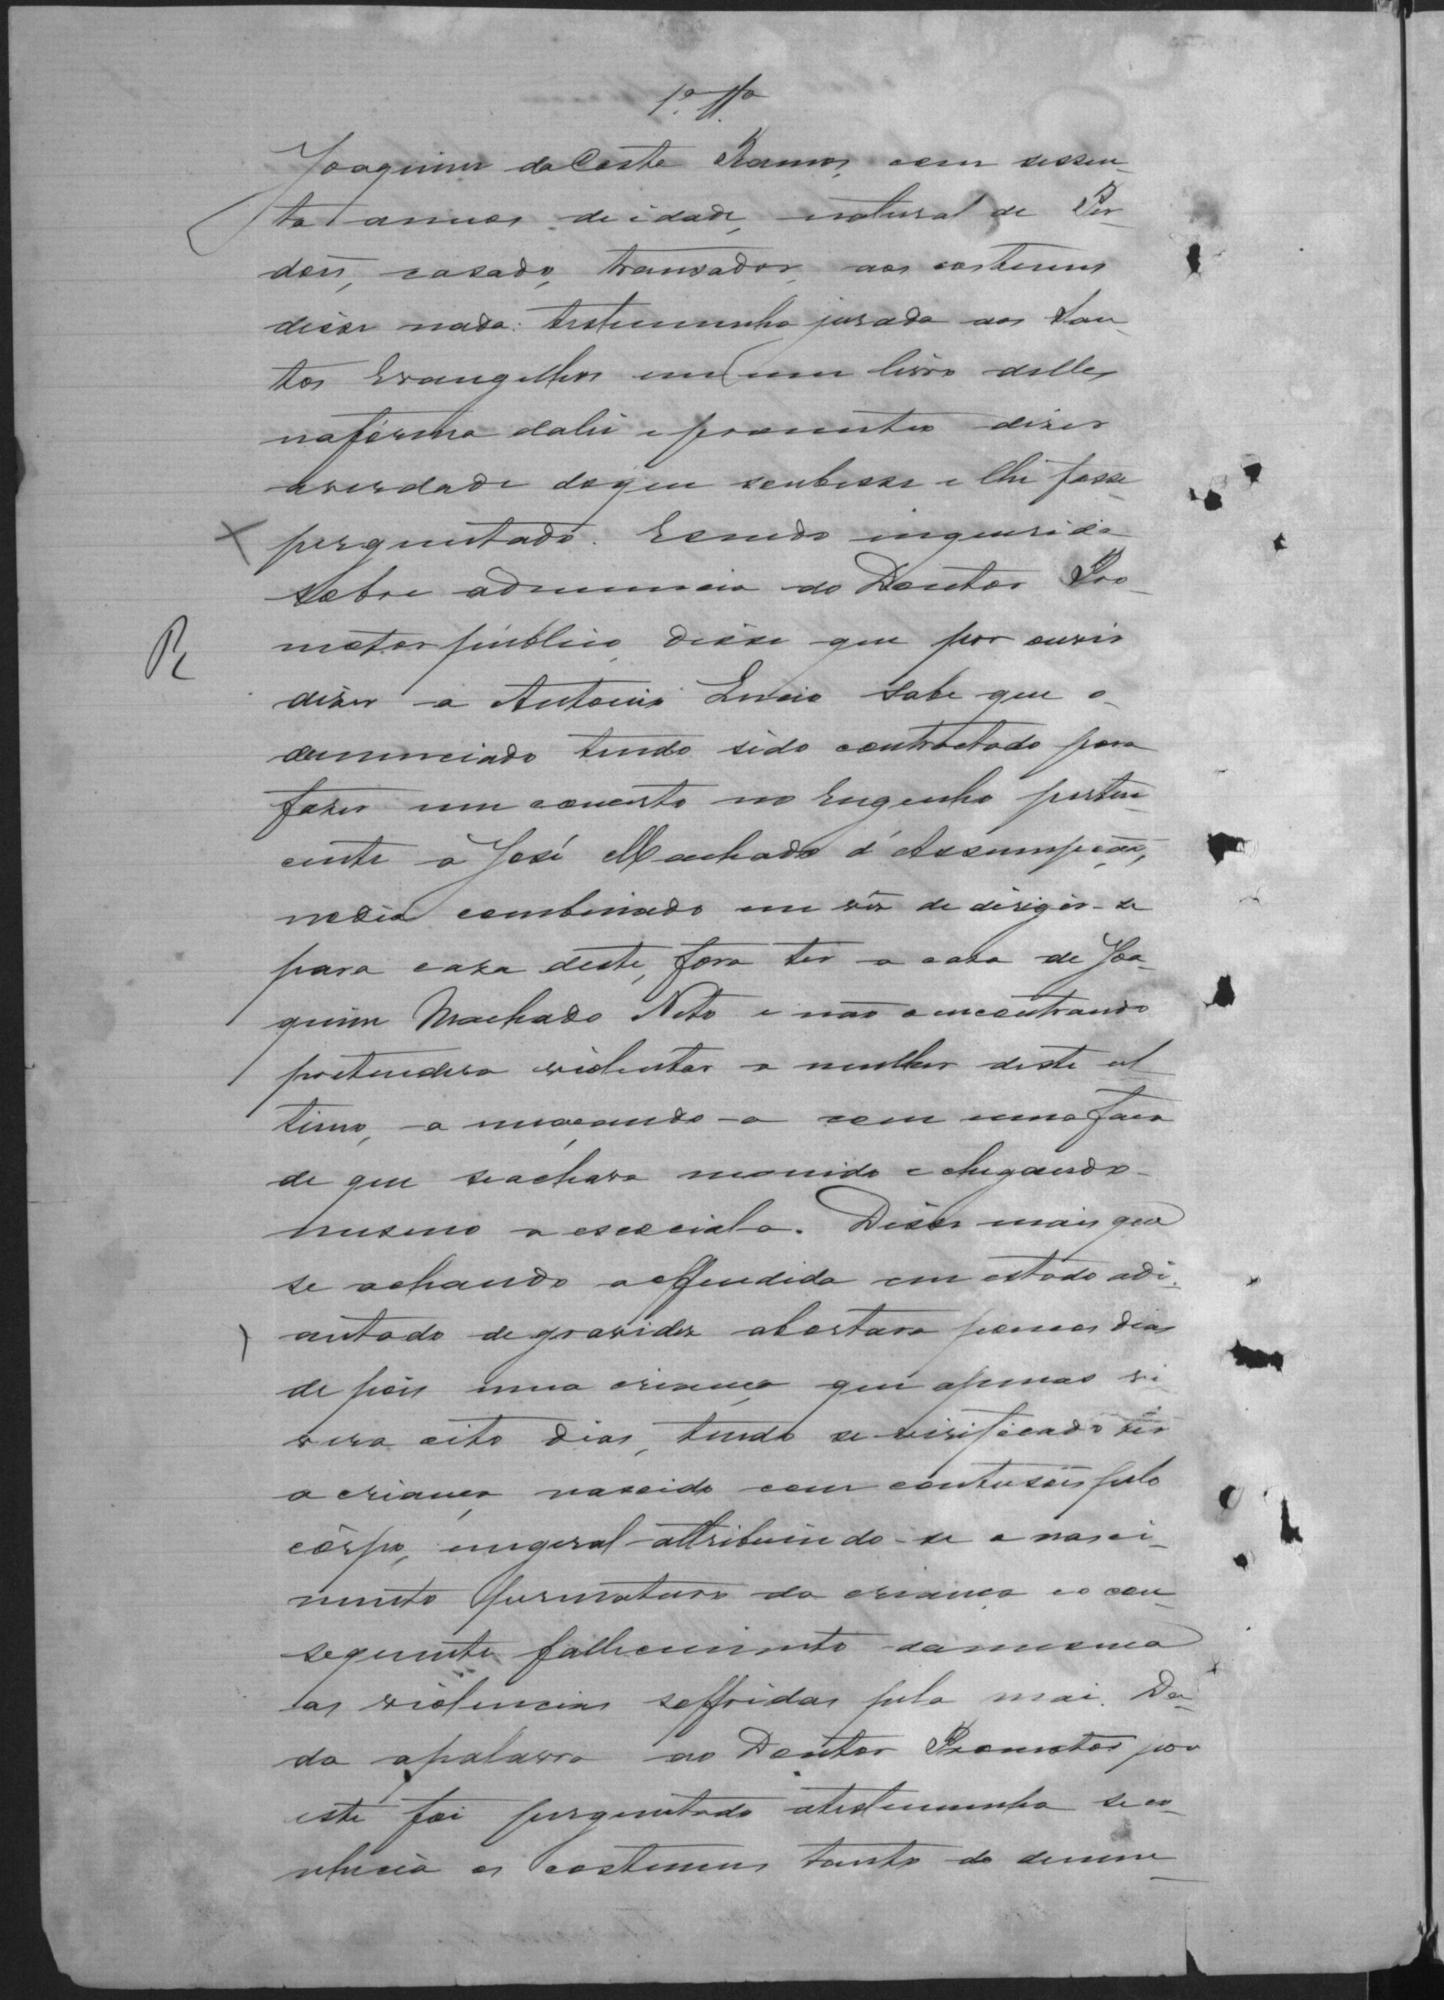 1.ª Tta
Joaquim da Costa Ramos, com sessen-
ta annos de idade, natural de Per-
dões, casado, trançador, aos costumes
disse nada: testemunha jurada aos San-
tos Evangelhos em um livro delles
na fórma da lei e prometteu dizer
a verdade do que soubesse e lhe fosse
perguntado. E sendo inquerida
sobre a denuncia do Doutor Pro-
motor publico disse que por ouvir
dizer a Antonio Lucio sabe que o
denunciado tendo sido contractado para
fazer um concerto no Engenho perten-
cente a José Machado d'Assumpção,
no dia combinado em vez de dirigir-se
para casa deste, fora ter a casa de Joa-
quim Machado Neto e não o encontrando
pretendera violentar a mulher deste ul
timo, a meaçando-a com uma faca
de que se achava munido e chegando
mesmo a esbocial-a. Disse mais que
se achando a offendida em estado adi-
antado de gravidez abortara poucos dias
depois uma criança que apenas vi
vera oito dias, tendo se verificado ter
a criança nascido com contusões pelo
corpo, em geral attribuindo-se o nasci-
mento prematuro da criança e o con-
sequente fallecimento da mesma
as violencias soffridas pela mãi. Da-
da a palavra ao Doutor Promotor por
este foi perguntado a testemunha se co-
nhecia os costumes tanto do denun-